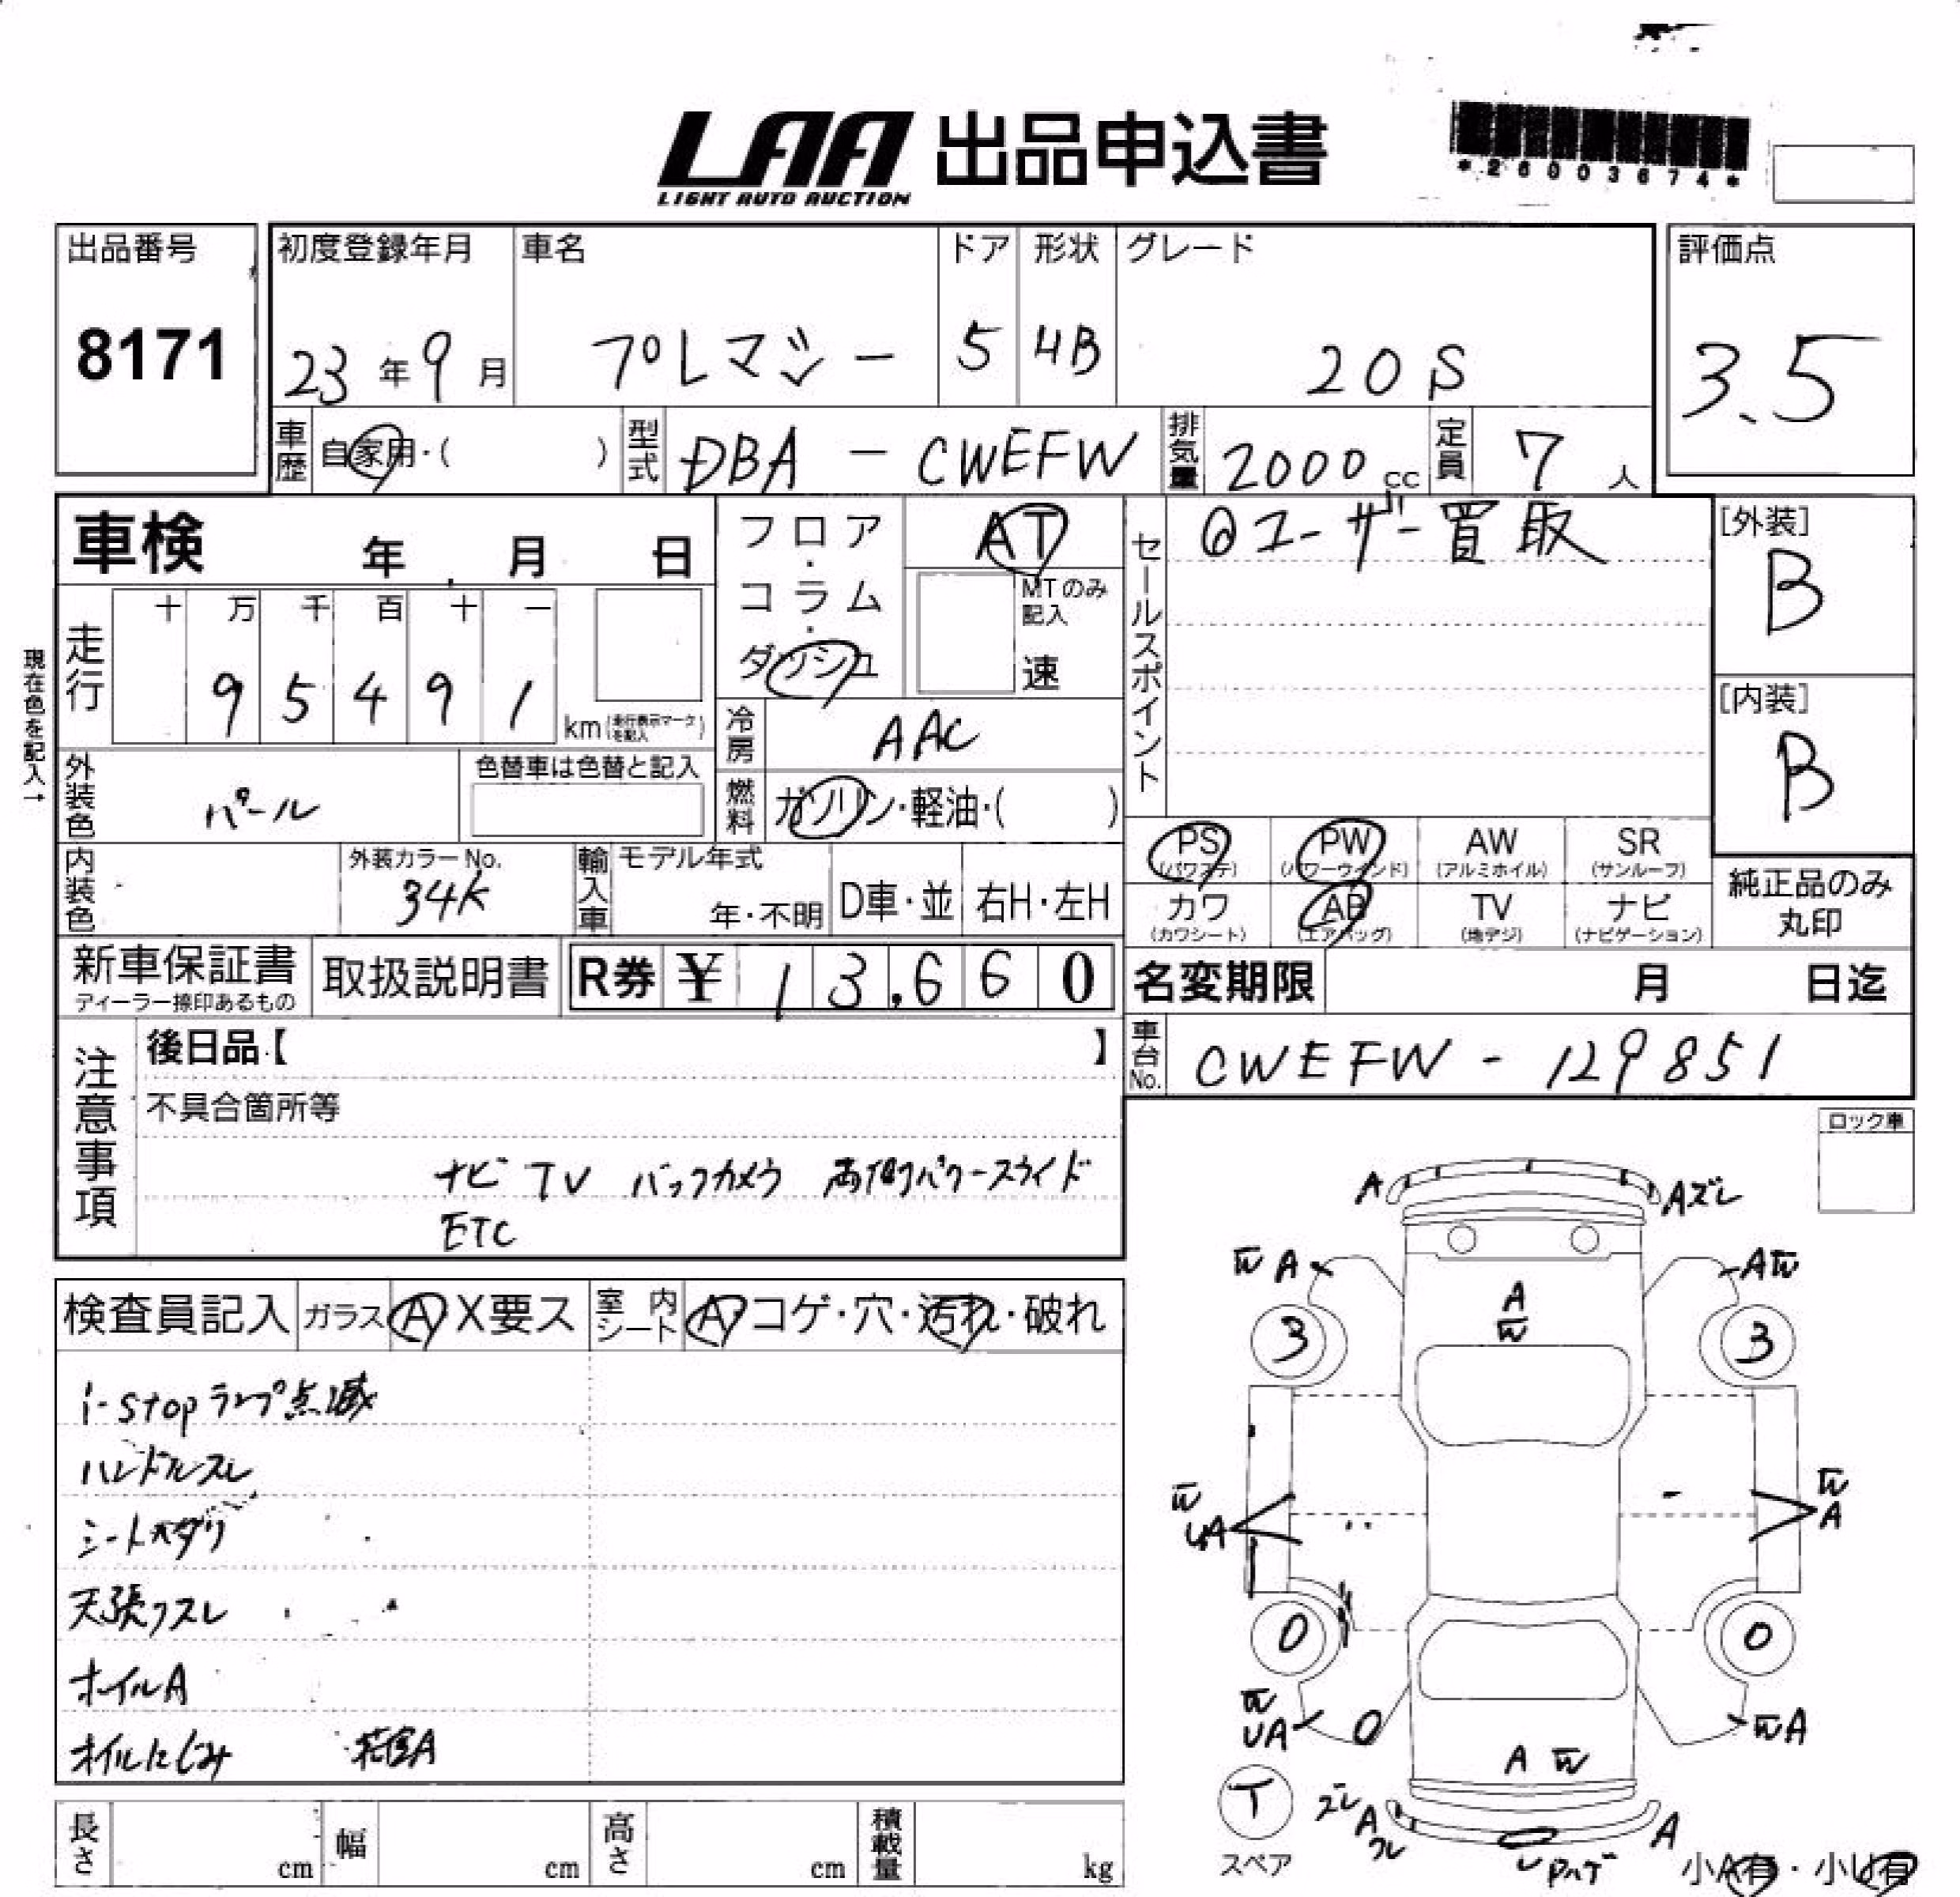 LAA 出品申込書
LIGHT AUTO AUCTION
*26003674*
出品番号
8171
初度登録年月
23年9月
車名
プレマシー
ドア
5
形状
4B
グレード
20S
評価点
3.5
車歴
自家用・( )
型式
DBA - CWEFW
排気量
2000cc
定員
7人
車検 年 月 日
現在色を記入↑
走行
十 万 千 百 十 一
9 5 4 9 1
km(走行表示マークを記入)
外装色
パール
色替車は色替と記入
内装色
外装カラーNo.
34K
フロア・コラム・ダッシュ
AT
MTのみ記入
速
冷房
AAC
燃料
ガソリン・軽油・( )
輸入車
モデル年式
年・不明
D車・並
右H・左H
セールスポイント
◎ユーザー買取
[外装]
B
[内装]
B
PS
(パワステ)
PW
(パワーウインド)
AW
(アルミホイル)
SR
(サンルーフ)
カワ
(カワシート)
AB
(エアバッグ)
TV
(地デジ)
ナビ
(ナビゲーション)
純正品のみ
丸印
新車保証書
ディーラー捺印あるもの
取扱説明書
R券 ¥ 13,660
名変期限 月 日迄
車台No.
CWEFW - 129851
注意事項
後日品【 】
不具合箇所等
ナビ TV バックカメラ 両側パワースライド
ETC
ロック車
検査員記入
ガラス A X要ス
室内シート A・コゲ・穴・汚れ・破れ
i-stopランプ点滅
ハンドルスレ
シートヘタリ
天張リスレ
ホイルA
オイルにじみ 荷室A
A
Aズレ
W A
A W
A
W
3
3
W
UA
W
A
0
0
W
UA
W A
A W
T
スペア
ズレ
A
A
小A有・小U有
長さ cm
幅 cm
高さ cm
積載量 kg